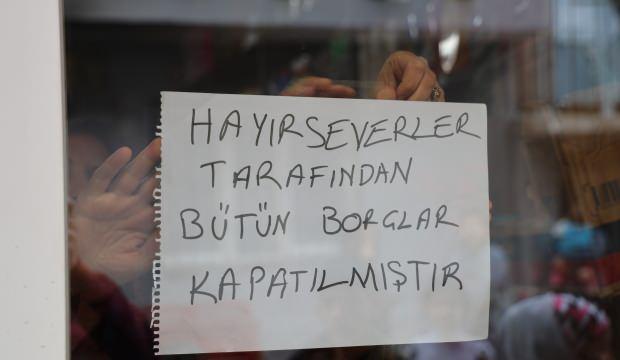 HAYIRSEVERLER
TARAFINDAN
BÜTÜN BORGLAR
KAPATILMIŞTIR